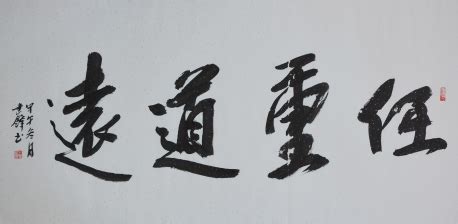 任重道遠
甲午冬月